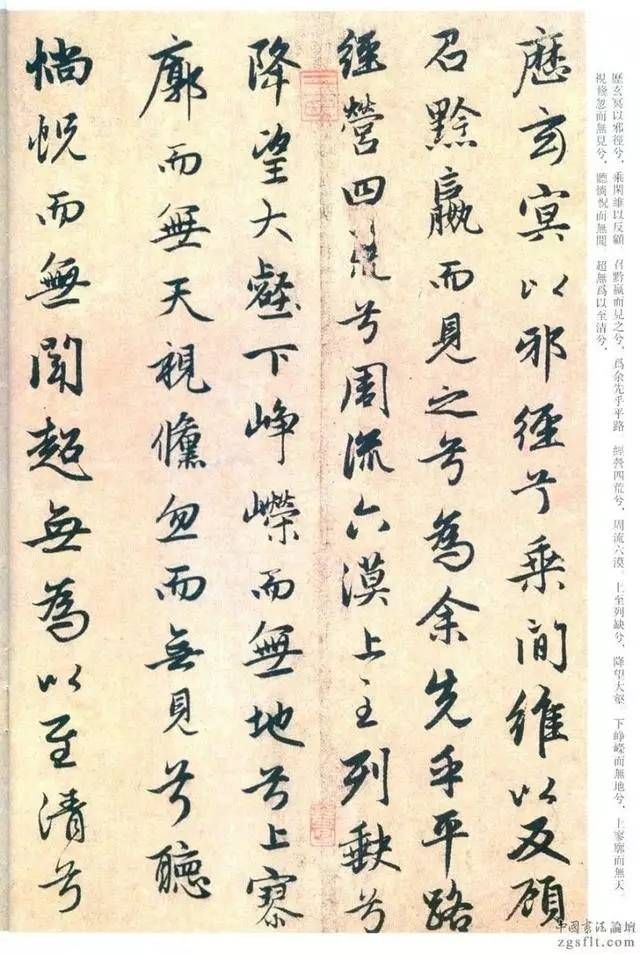 歷玄冥以邪徑兮、乘閑維以反顧 召黔嬴而見之兮、爲余先乎平路 經營四荒兮、周流六漠。上至列缺兮、降望大壑 下崢嶸而無地兮、上寥廓而無天
視倏忽而無見兮、聽惝怳而無聞 超無爲以至清兮、
歷玄冥以邪徑兮乘間維以反顧
召黔嬴而見之兮為余先乎平路
經營四荒兮周流六漠上至列缺兮
降望大壑下崢嶸而無地兮上寥
廓而無天視儵忽而無見兮聽
惝怳而無聞超無為以至清兮
中国書法論壇
zgsflt.com